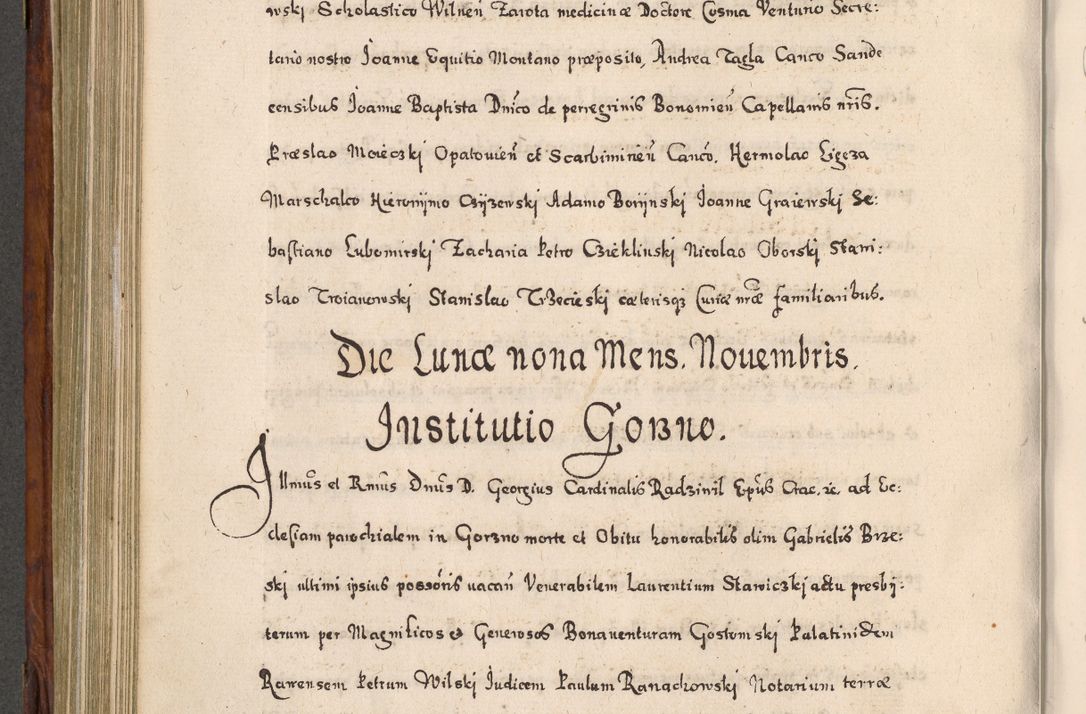 wski Scholastico Wilneñ Zarota medicinæ Doctore Cosma Venturio Secre:
tario nostro Joanne Equitio Montano præposito, Andrea Tagla Canco Sande
censibus Joanne Baptista Dnico de perregrinis Bonomieñ Capellanis nris.
Præslao Moieczkj Opatovieñ et Scarbimirieñ Canco. Hermolao Ligęza
Marschalco Hieronijmo Czijzewskj Adamo Borijnskj Joanne Graiewskj Se:
bastiano Lubomirskj Zacharia Petro Czieklinskj Nicolao Oborskj Stani:
slao Troianowskj Stanislao Trzecieskj cæterisqz Curiæ nræ familiaribus.
Die Lunæ nona Mens. Nouembris.
Institutio Gorzno.
Illmus et Rmus Dnus D. Georgius Cardinalis Radziuil Epus Crac. ic. ad Ec:
clesiam parochialem in Gorzno morte et Obitu honorabilis olim Gabrielis Brze:
skj ultimi ipsius possoris uacañ Venerabilem Laurentium Starziczkj actu presbij:
terum per Magnificos et Generosos Bonauenturam Gostomskj Palatinidem
Rawensem Petrum Wilskj Judicem Paulum Ranachowskj Notarium terræ